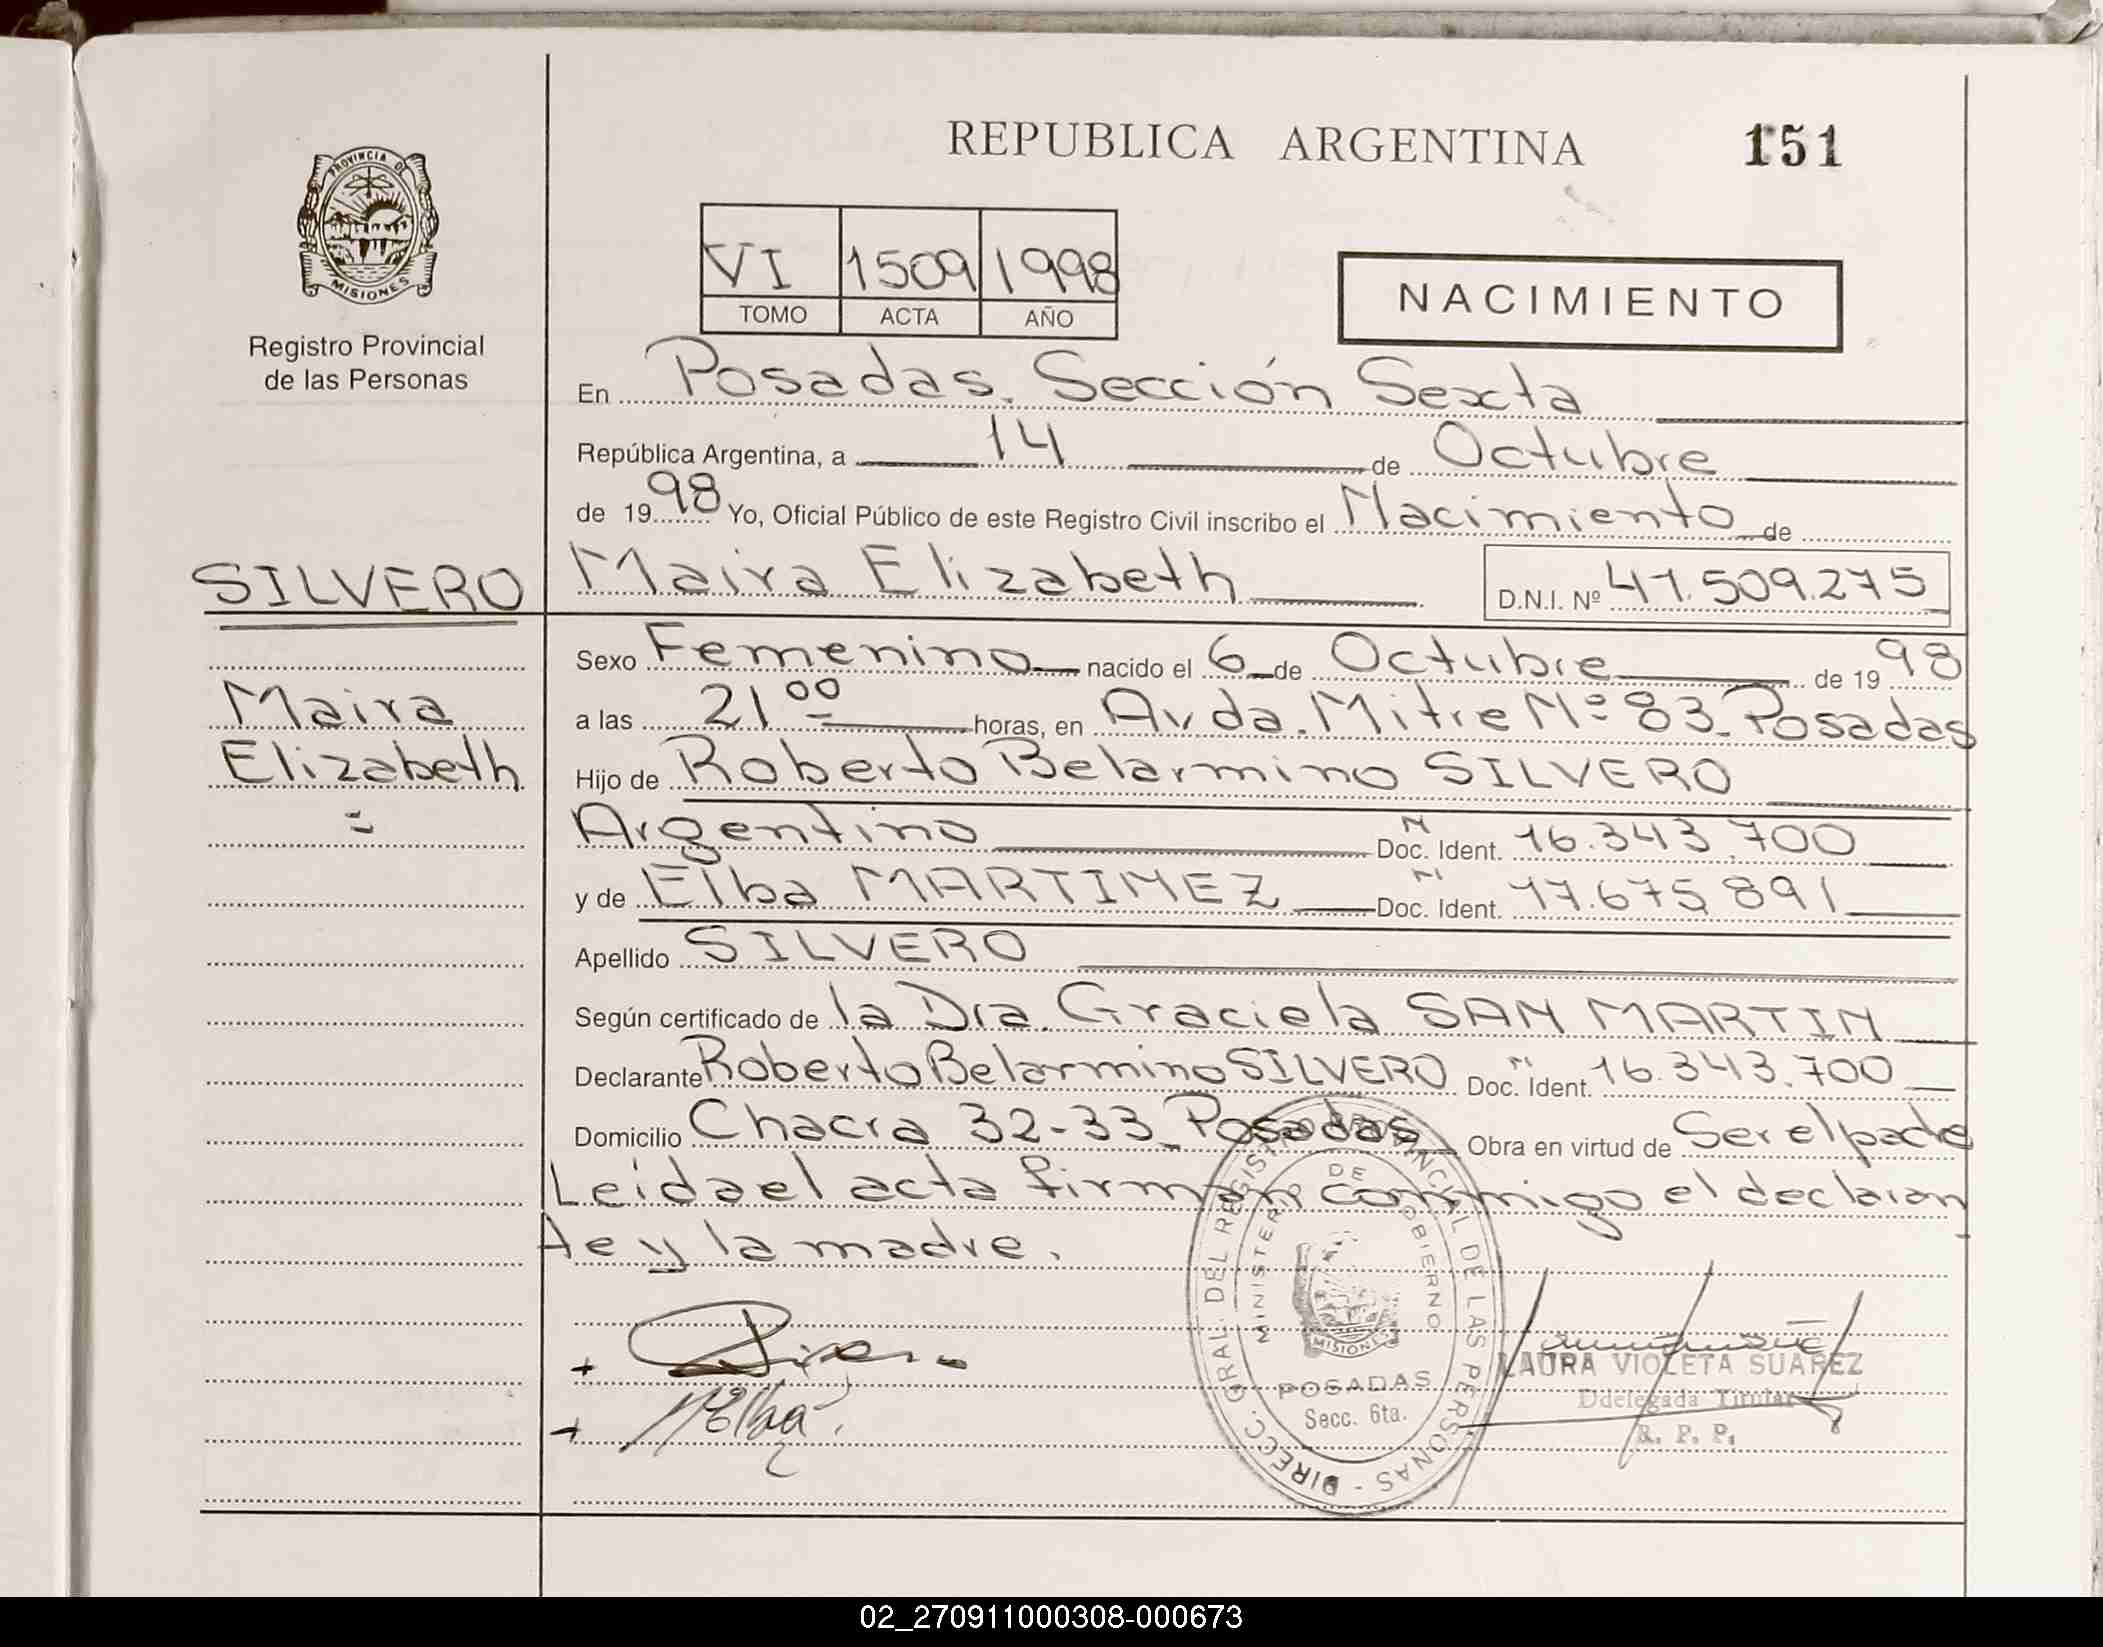 REPUBLICA ARGENTINA 151
PROVINCIA DE
MISIONES
Registro Provincial
de las Personas
VI 1509 1998
TOMO ACTA AÑO
NACIMIENTO
En Posadas. Sección Sexta
República Argentina, a 14 de Octubre
de 1998 Yo, Oficial Público de este Registro Civil inscribo el Nacimiento de
SILVERO Maira Elizabeth D.N.I. Nº 41.509.275
Sexo Femenino nacido el 6 de Octubre de 1998
Maira
a las 21 00 horas, en Avda. Mitre Nº 83. Posadas
Elizabeth
Hijo de Roberto Belarmino SILVERO
Argentino Doc. Ident. 16.343.700
y de Elba MARTINEZ Doc. Ident. 17.675.891
Apellido SILVERO
Según certificado de la Dra. Graciela SAN MARTIN
Declarante Roberto Belarmino SILVERO Doc. Ident. 16.343.700
Domicilio Chacra 32-33 Posadas Obra en virtud de Ser el padre
Leida el acta firman conmigo el declaran
te y la madre.
DIRECC. GRAL. DEL REGISTRO PROVINCIAL DE LAS PERSONAS -
MINISTERIO DE GOBIERNO
MISIONES
POSADAS
Secc. 6ta.
LAURA VIOLETA SUAREZ
Ddelegada Titular
R. P. P.
02_270911000308-000673